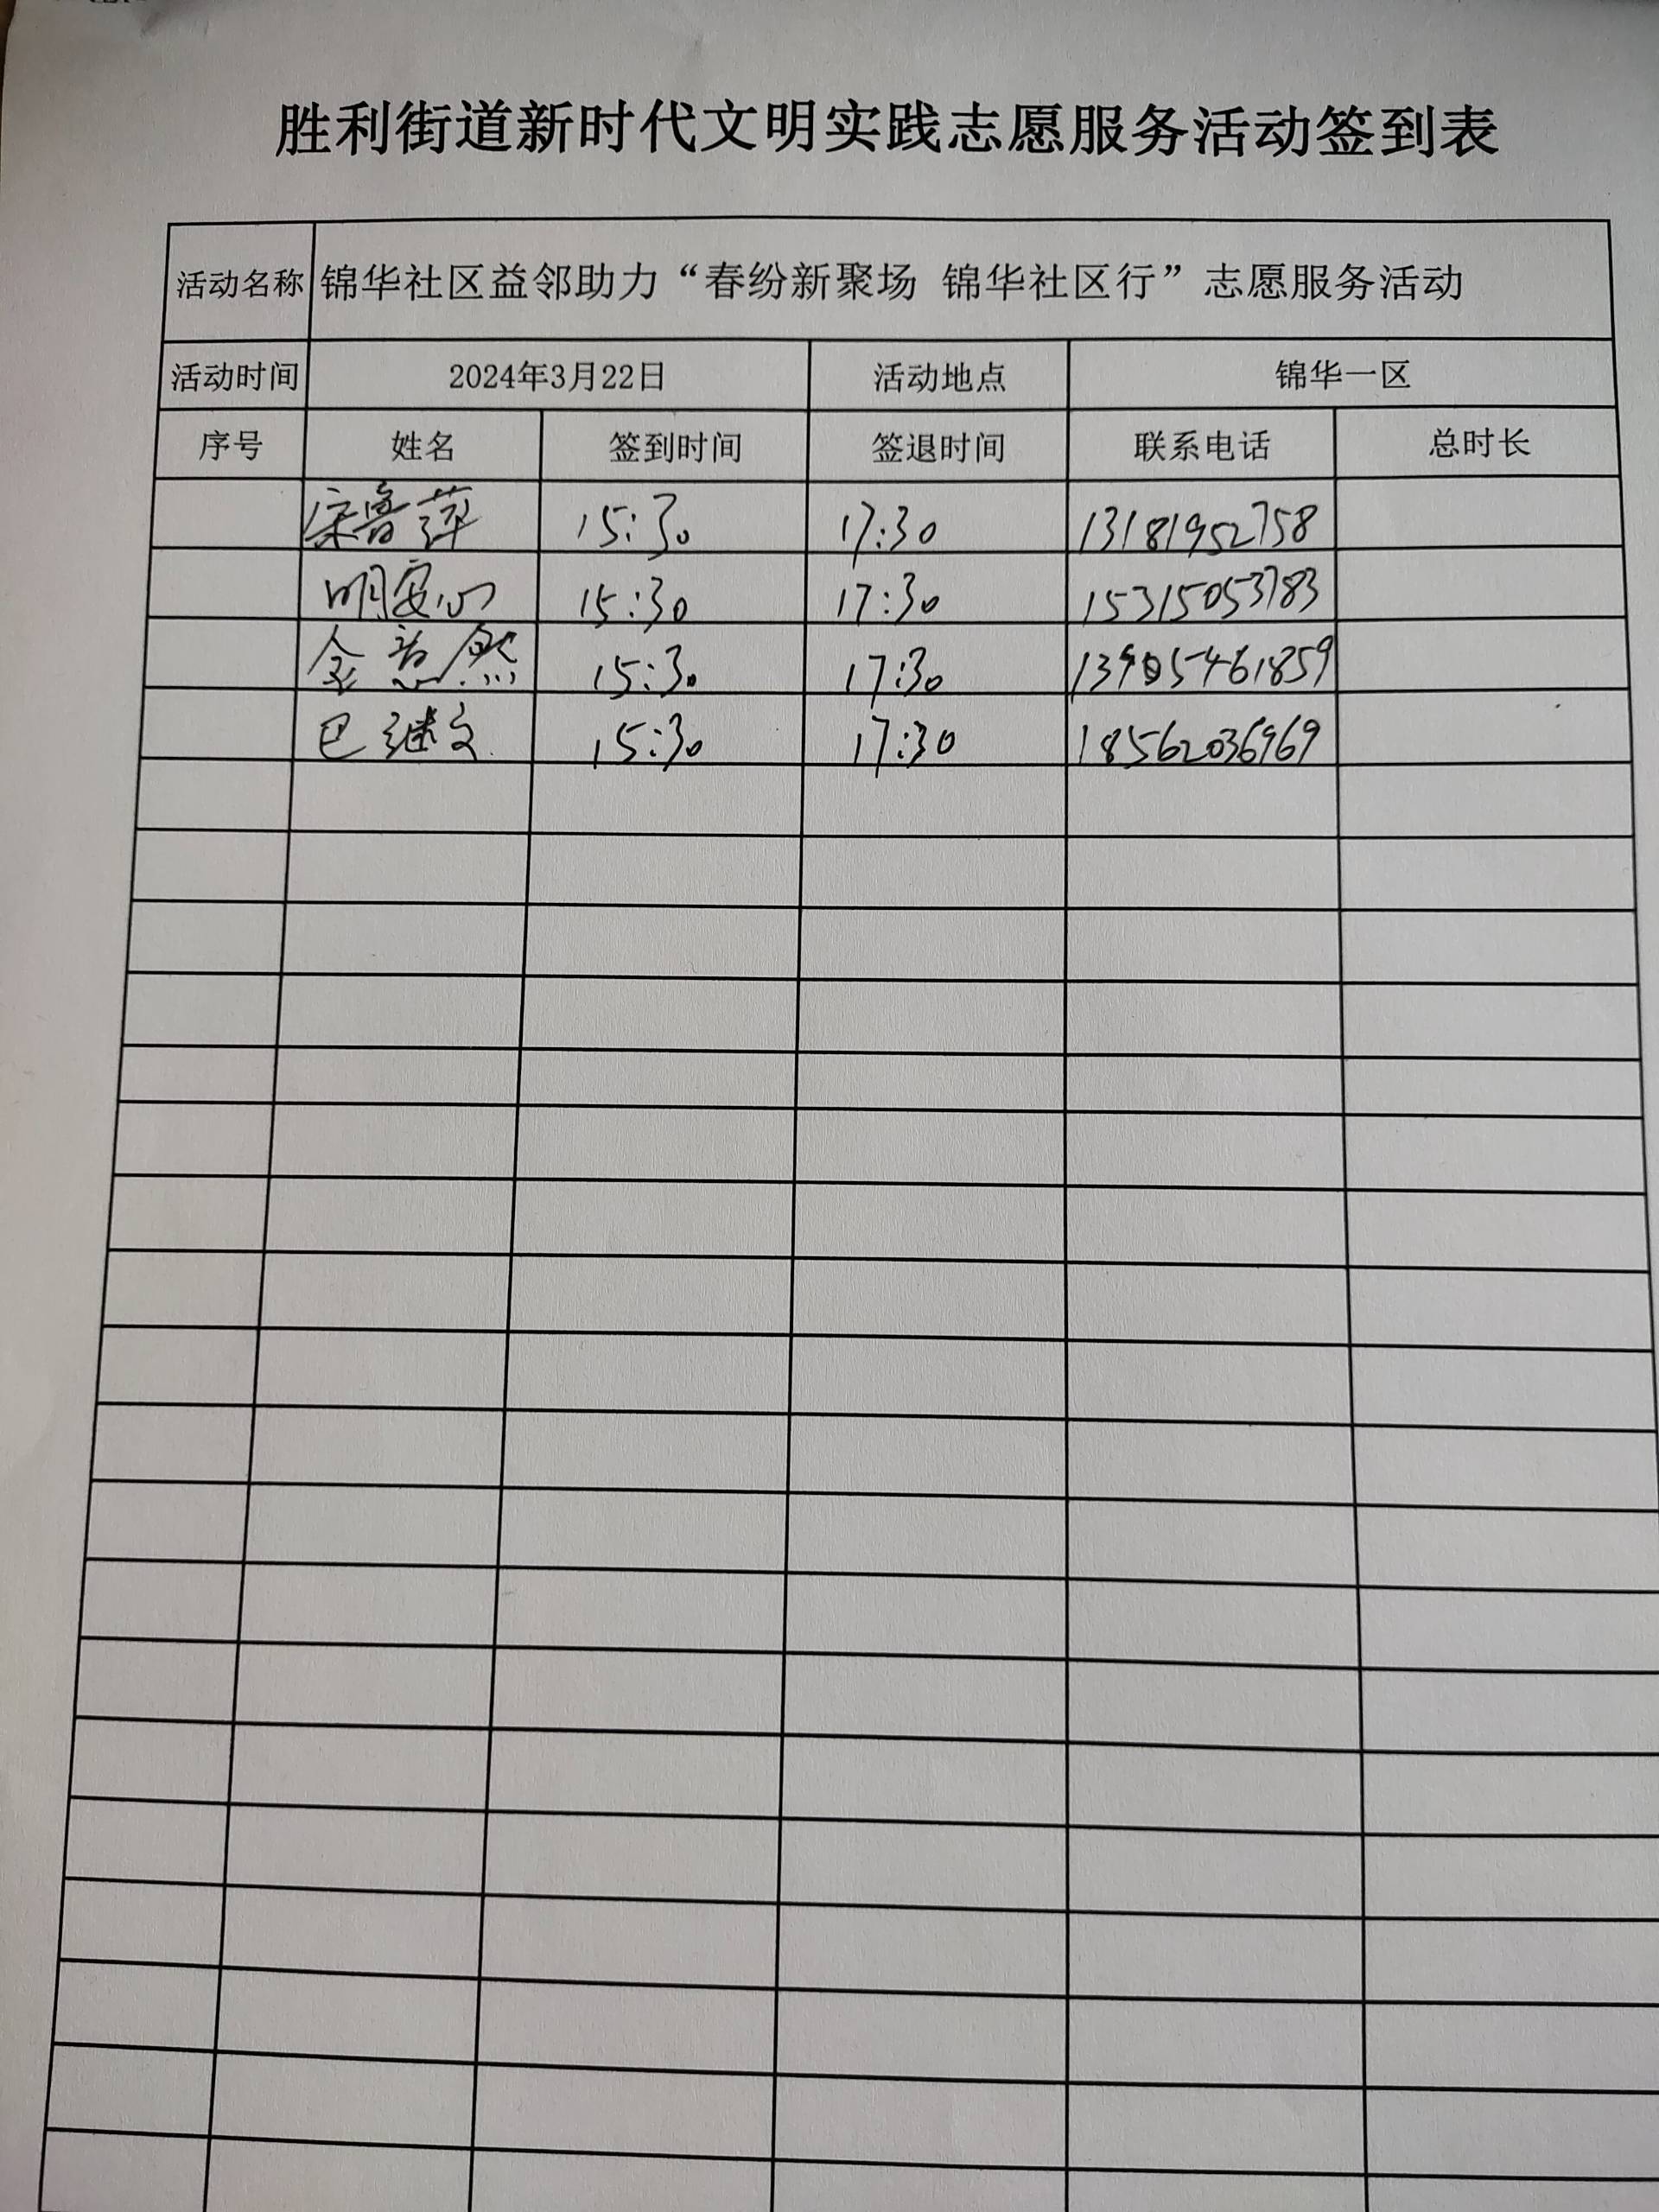 胜利街道新时代文明实践志愿服务活动签到表
活动名称 锦华社区益邻助力“春纷新聚场 锦华社区行”志愿服务活动
活动时间 2024年3月22日 活动地点 锦华一区
序号 姓名 签到时间 签退时间 联系电话 总时长
宋鲁萍 15:30 17:30 13181952758
明安心 15:30 17:30 15315053783
金意然 15:30 17:30 13905461859
巴继文 15:30 17:30 18562036969